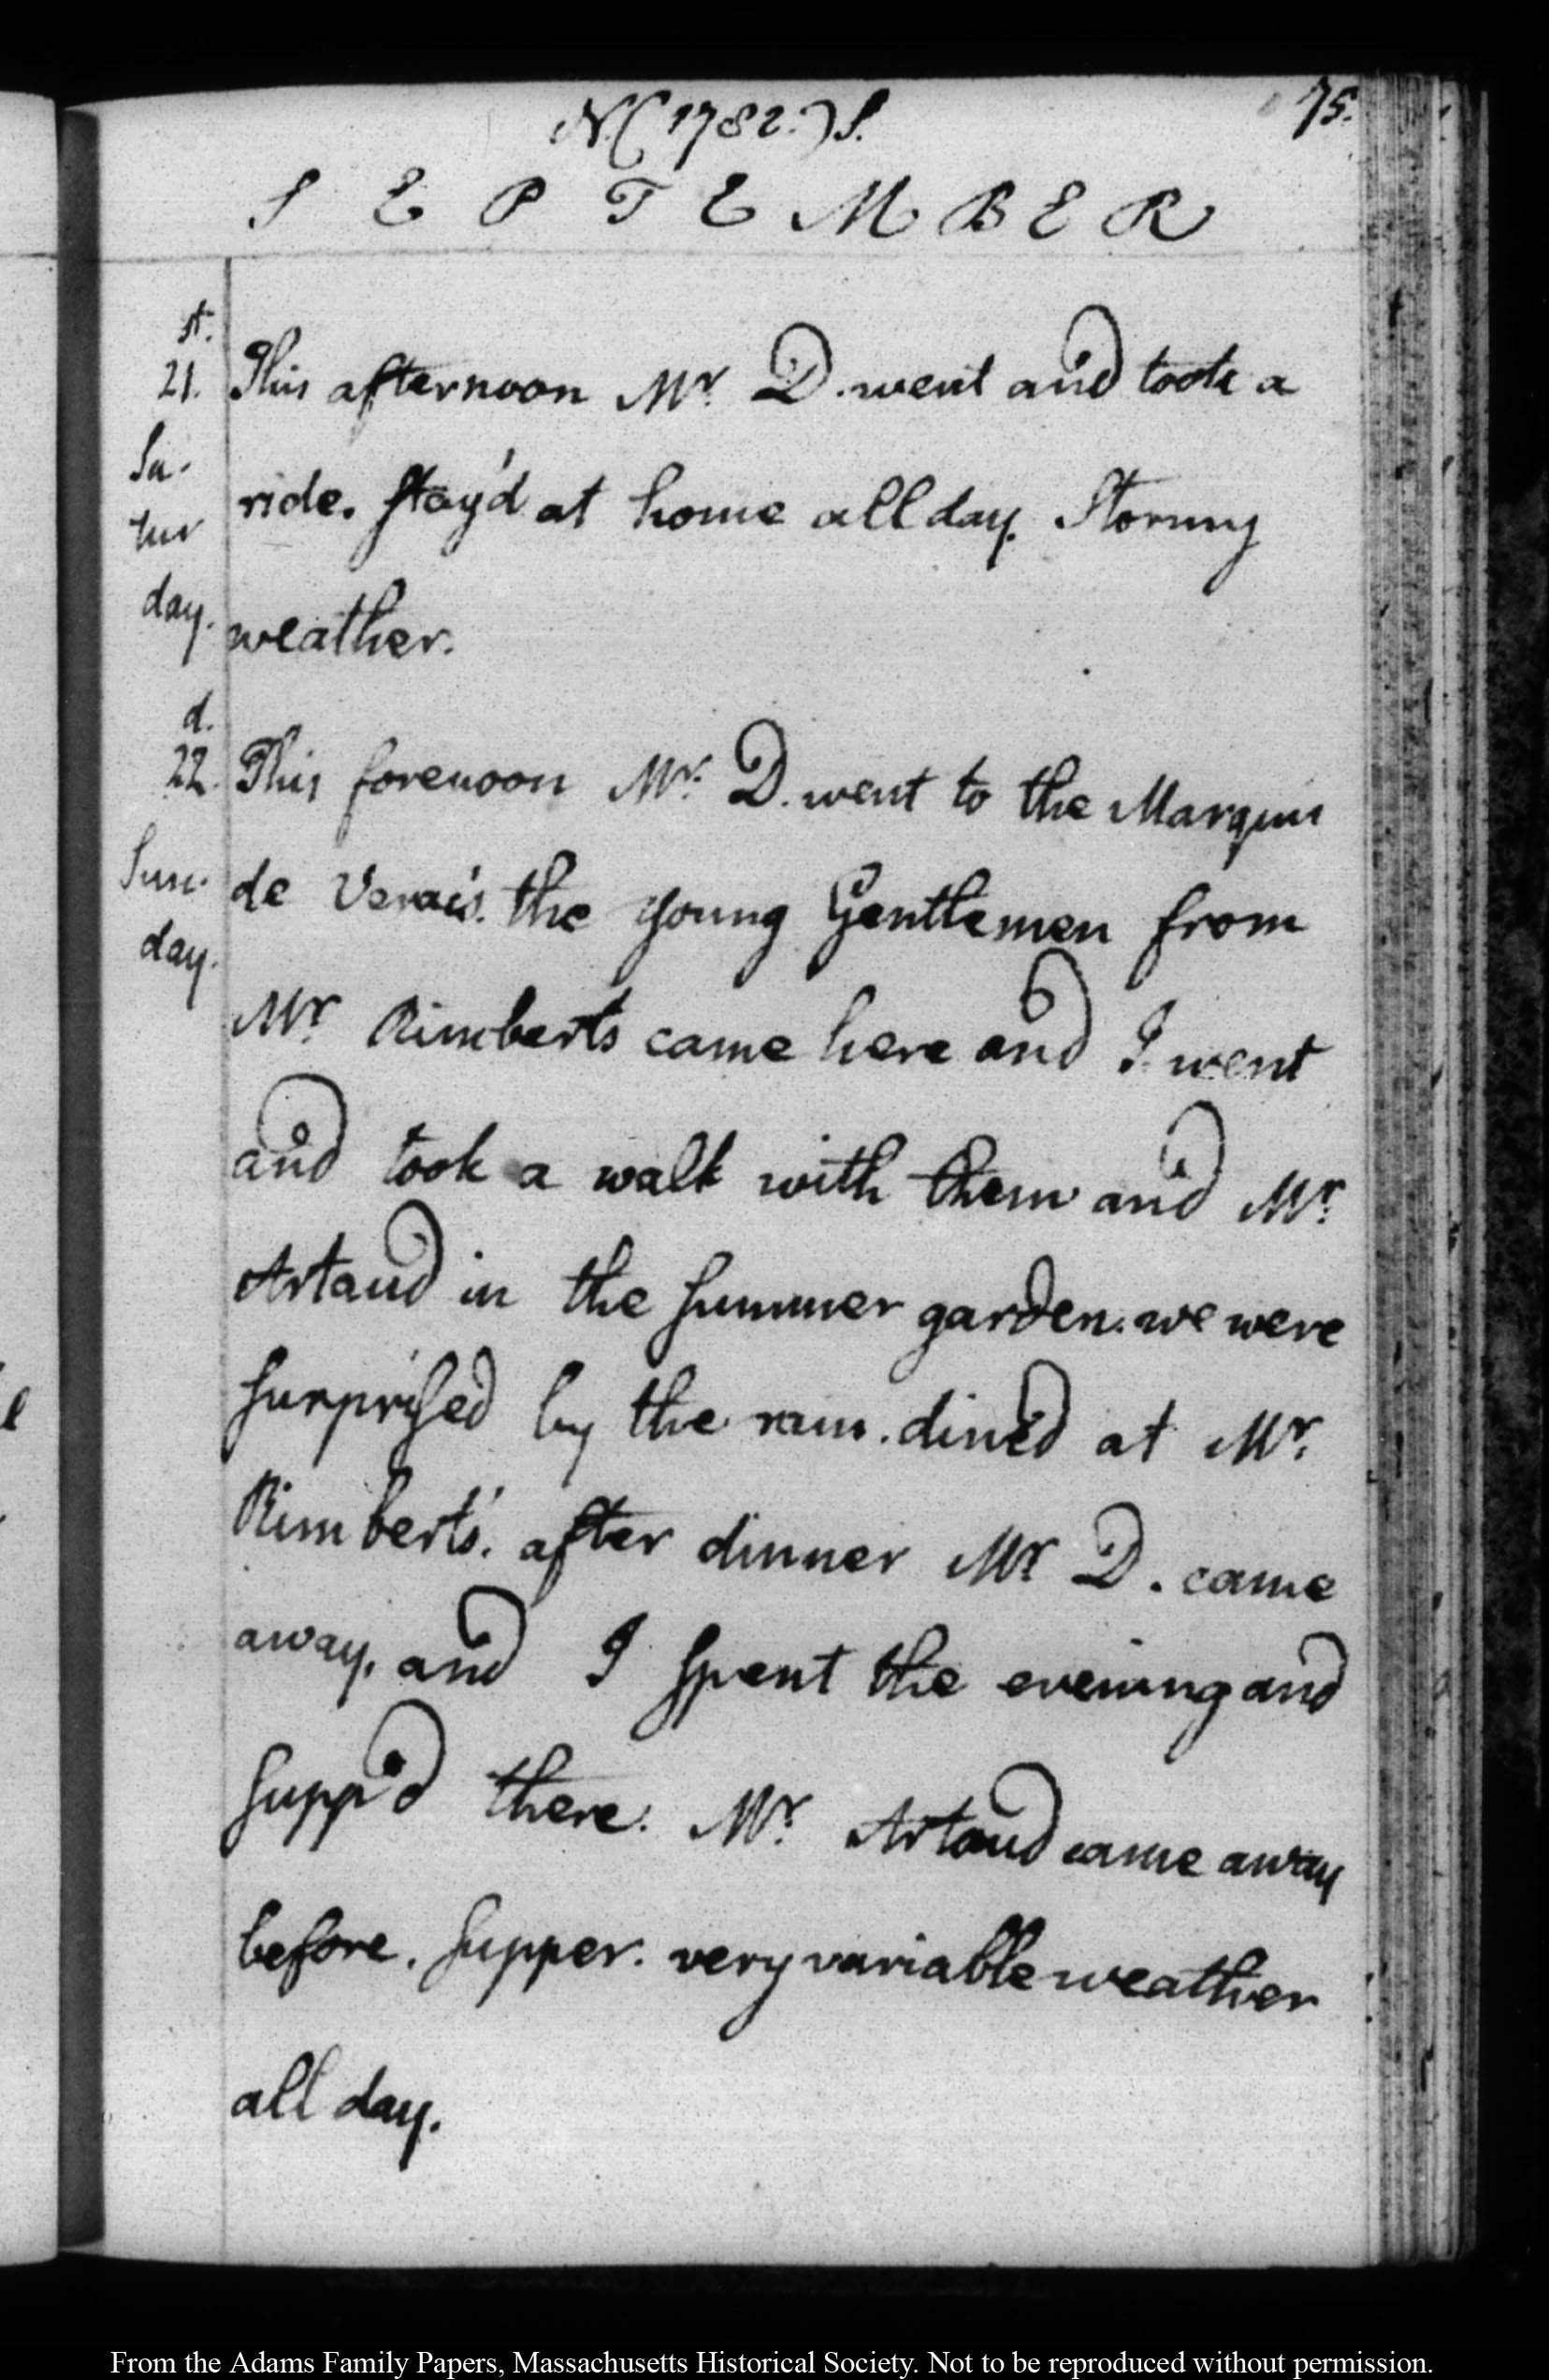 N.(1782.)S.
75.
SEPTEMBER
st.
21. This afternoon Mr. D. went and took a
Sa-
ride. Stay'd at home all day. Stormy
tur
day.
weather.
d.
22. This forenoon Mr. D. went to the Marquis
Sun-
de Verac's. the young Gentlemen from
day.
Mr. Rimberts came here and I went
and took a walk with them and Mr.
Artaud in the Summer garden. we were
Surprised by the rain. dined at Mr.
Rimbert's. after dinner Mr. D. came
away. and I Spent the evening and
Supp'd there. Mr. Artaud came away
before. Supper. very variable weather
all day.
From the Adams Family Papers, Massachusetts Historical Society. Not to be reproduced without permission.